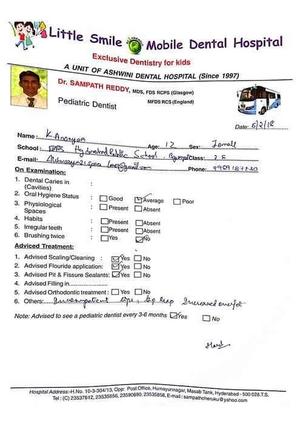 Little Smile Mobile Dental Hospital
Exclusive Dentistry for kids
A UNIT OF ASHWINI DENTAL HOSPITAL (Since 1997)
Dr. SAMPATH REDDY, MDS, FDS RCPS (Glasgow)
MFDS RCS (England)
Pediatric Dentist
Date: 5/2/18
Name: K Ananya Age: 12 Sex: Female
School: Public School Class:
E-mail: Phone:
On Examination:
1. Dental Caries in (Cavities)
2. Oral Hygiene Status Good Average Poor
3. Physiological Spaces Present Absent
4. Habits Present Absent
5. Irregular teeth Present Absent
6. Brushing twice Yes No
Adviced Treatment:
1. Advised Scaling/Cleaning : Yes No
2. Advised Flouride application: Yes No
3. Advised Pit & Fissure Sealants: Yes No
4. Advised Filling in
5. Advised Orthodontic treatment : Yes No
6. Others: Incompetent lips,
Note: Advised to see a pediatric dentist every 3-6 months Yes No
Hospital Address: H.No. 10-3-304/13, Opp: Post Office, Humayunnagar, Masab Tank, Hyderabad - 500 028. T.S.
Tel : (C) 23537812, 23535656, 23590680, 23535858, E-mail : sampathcheruku@yahoo.com